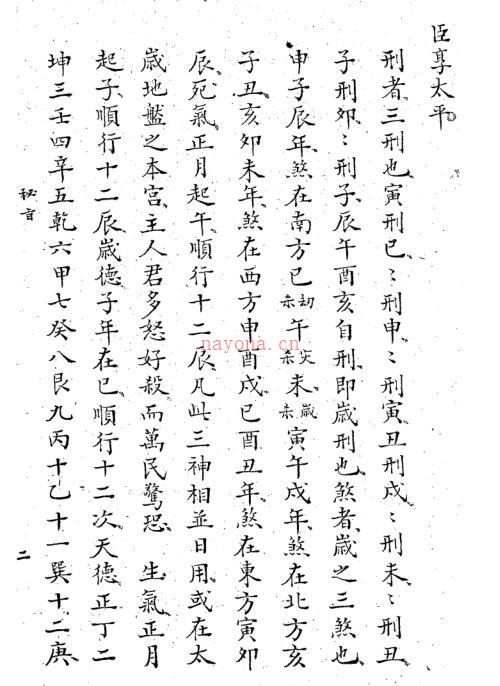 臣享太平
刑者三刑也寅刑巳〻刑申〻刑寅丑刑戌〻刑未〻刑丑
子刑卯〻刑子辰午酉亥自刑即歲刑也煞者歲之三煞也
申子辰年煞在南方巳劫杀午灾杀未歲杀寅午戌年煞在北方亥
子丑亥卯未年煞在西方申酉戌巳酉丑年煞在東方寅卯
辰死氣正月起午順行十二辰凡此三神相並日用或在太
歲地盤之本宮主人君多怒好殺而萬民驚恐 生氣正月
起子順行十二辰歲德子年在巳順行十二次天德正丁二
坤三壬四辛五乾六甲七癸八艮九丙十乙十一巽十二庚
秘言
二
nayona.cn